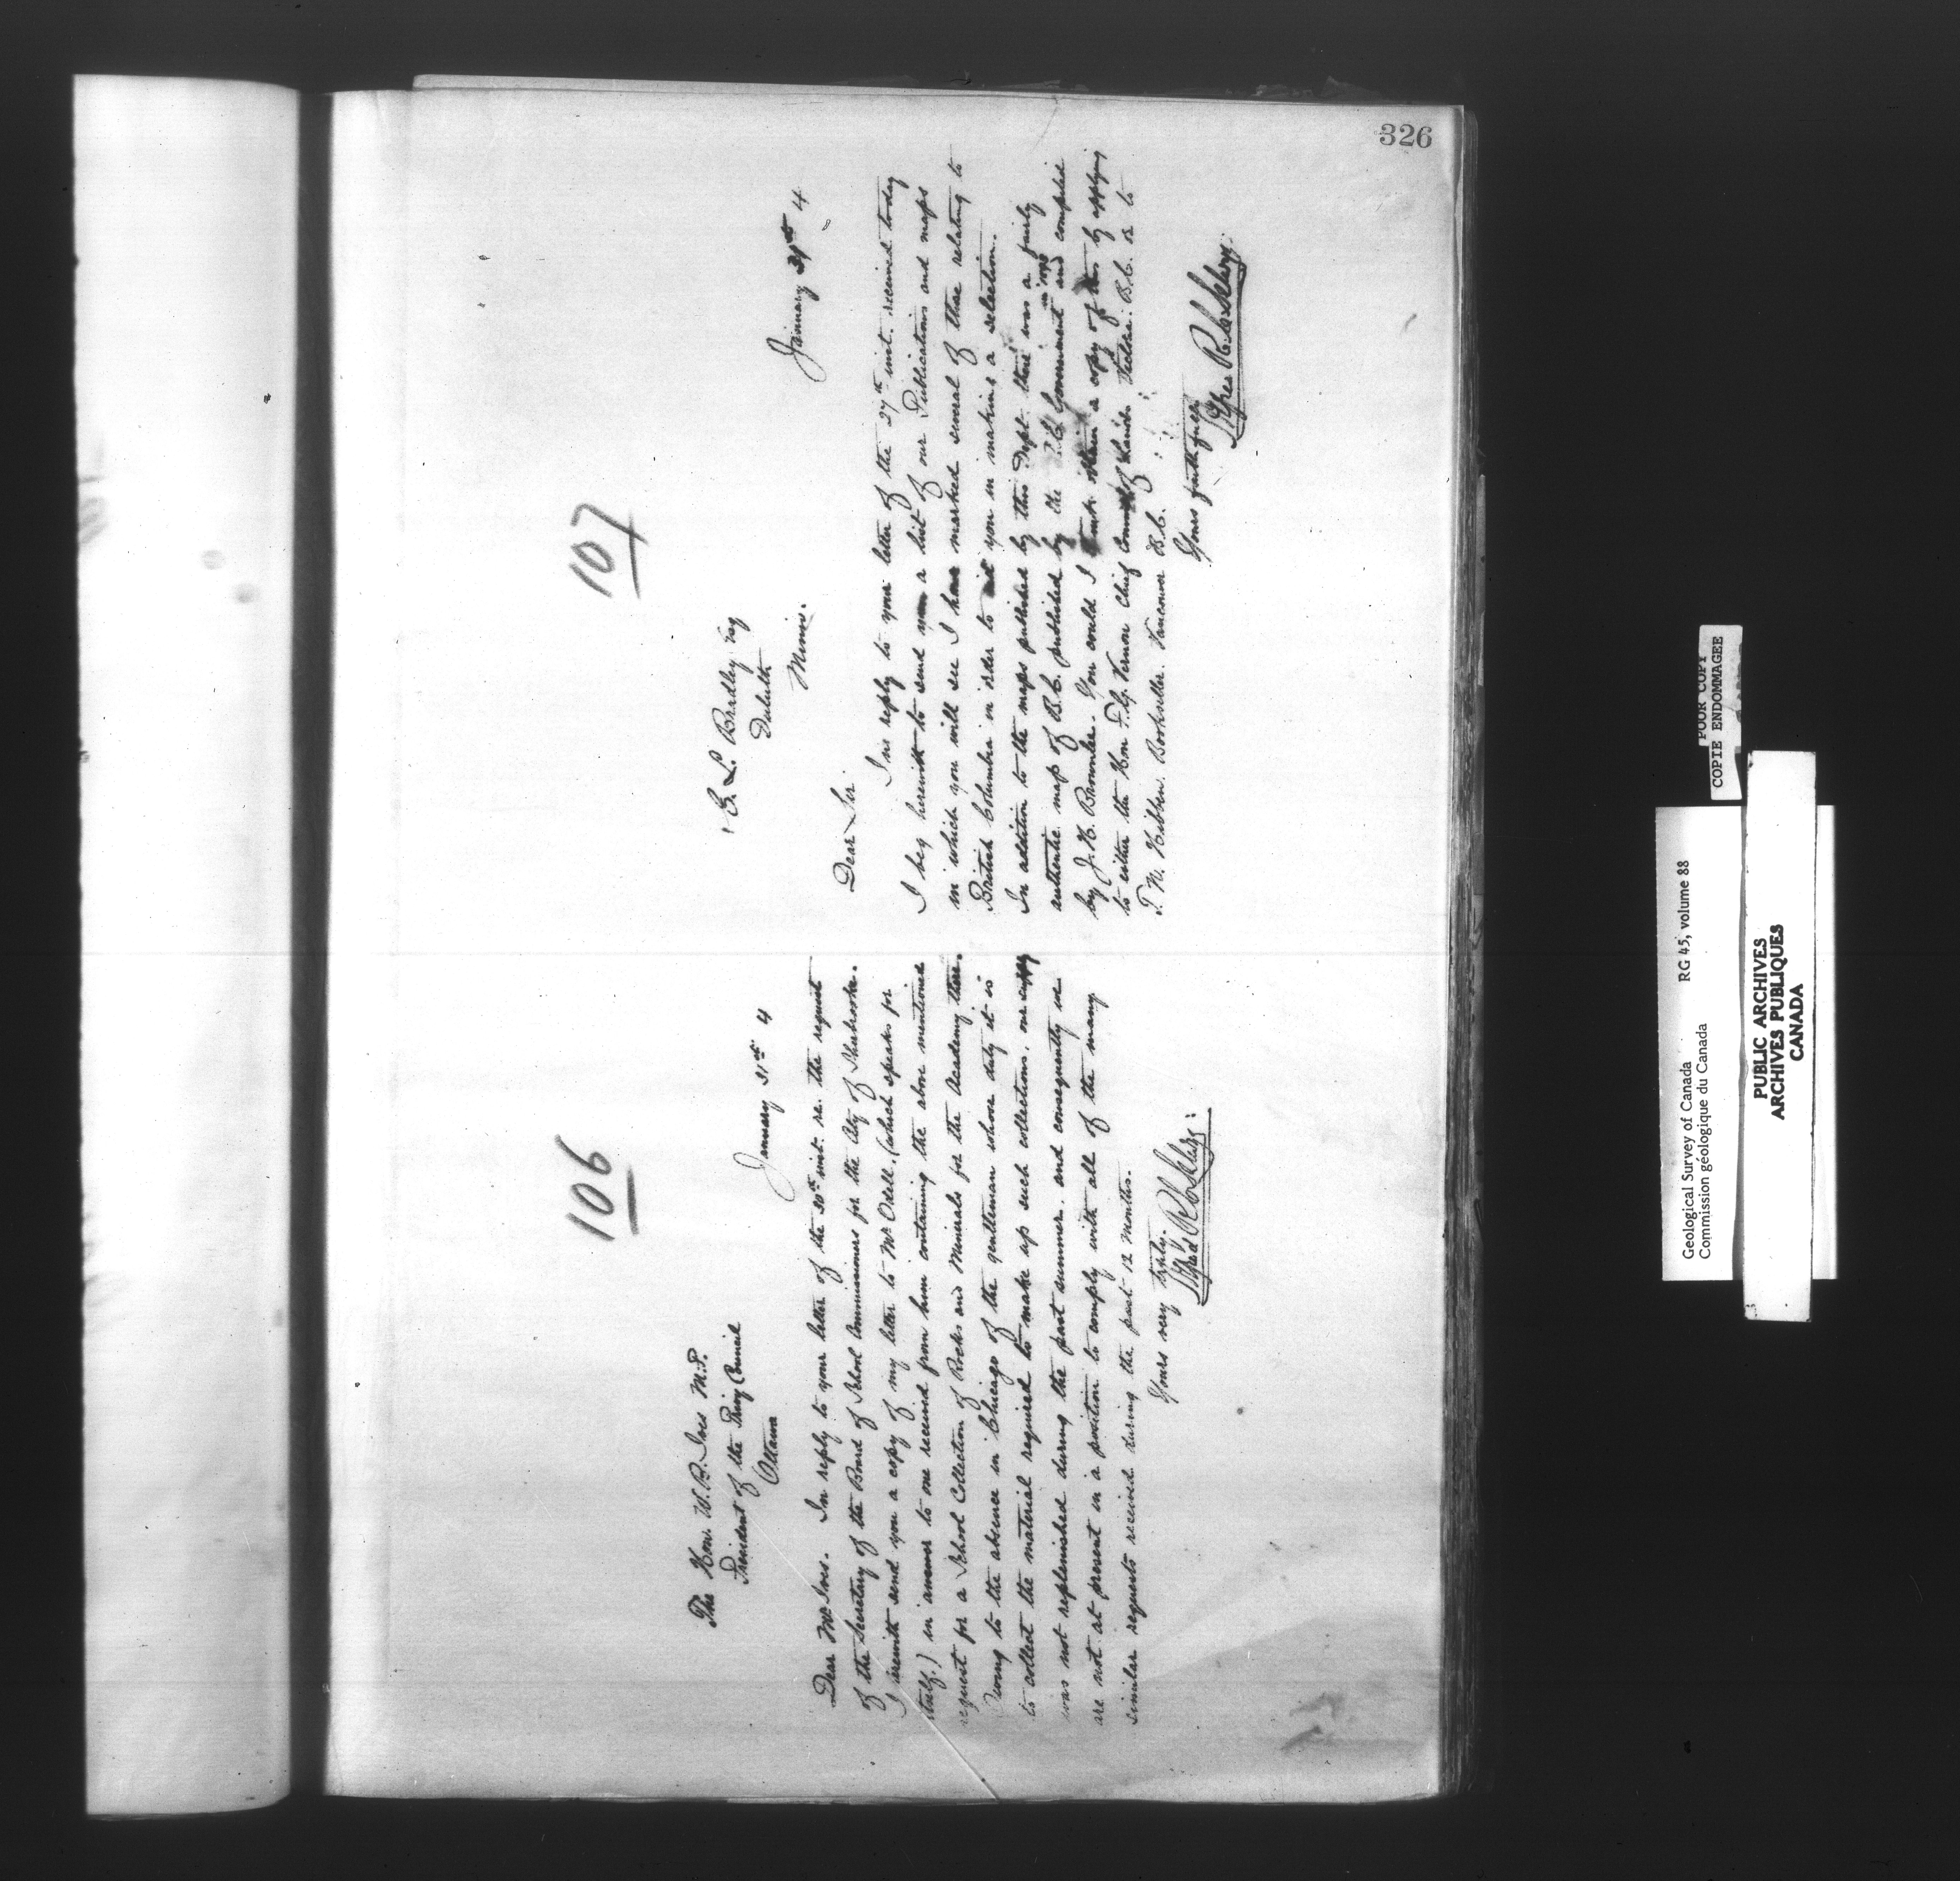 326
106
The Hon. W. B. Ives M.P.
President of the Privy Council
Ottawa
January 31st 4
Dear Mr Ives. In reply to your letter of the 30th inst. re. the request
of the Secretary of the Board of School Commissioners for the City of Sherbrooke.
I herewith send you a copy of my letter to Mr Odell. (which speaks for
itself.) in answer to one received from him containing the above mentioned
request for a School Collection of Rocks and Minerals for the Academy there.
Owing to the absence in Chicago of the gentleman whose duty it is
to collect the material required to make up such collections, our supply
was not replenished during the past summer. and consequently we
are not at present in a position to comply with all of the many
similar requests received during the past 12 months.
Yours very truly.
107
E. L. Bradley Esq
Duluth
Minn.
January 31st 4
Dear Sir
In reply to your letter of the 27th inst. received today
I beg herewith to send you a list of our Publications and maps
in which you will see I have marked several of those relating to
British Columbia in order to aid you in making a selection.
In addition to the maps published by this Dept. there was a fairly
authentic map of B.C. published by the B.C. Government in 1893 and compiled
by J. H. Brownlee. You could I think obtain a copy of this by applying
to either the Hon F. G. Vernon Chief Commr of Lands Victoria. B.C. or to
T. N. Hibben. Bookseller. Vancouver B.C.
Yours faithfully
POOR COPY
COPIE ENDOMMAGEE
Geological Survey of Canada RG 45, volume 88
Commission géologique du Canada
PUBLIC ARCHIVES
ARCHIVES PUBLIQUES
CANADA